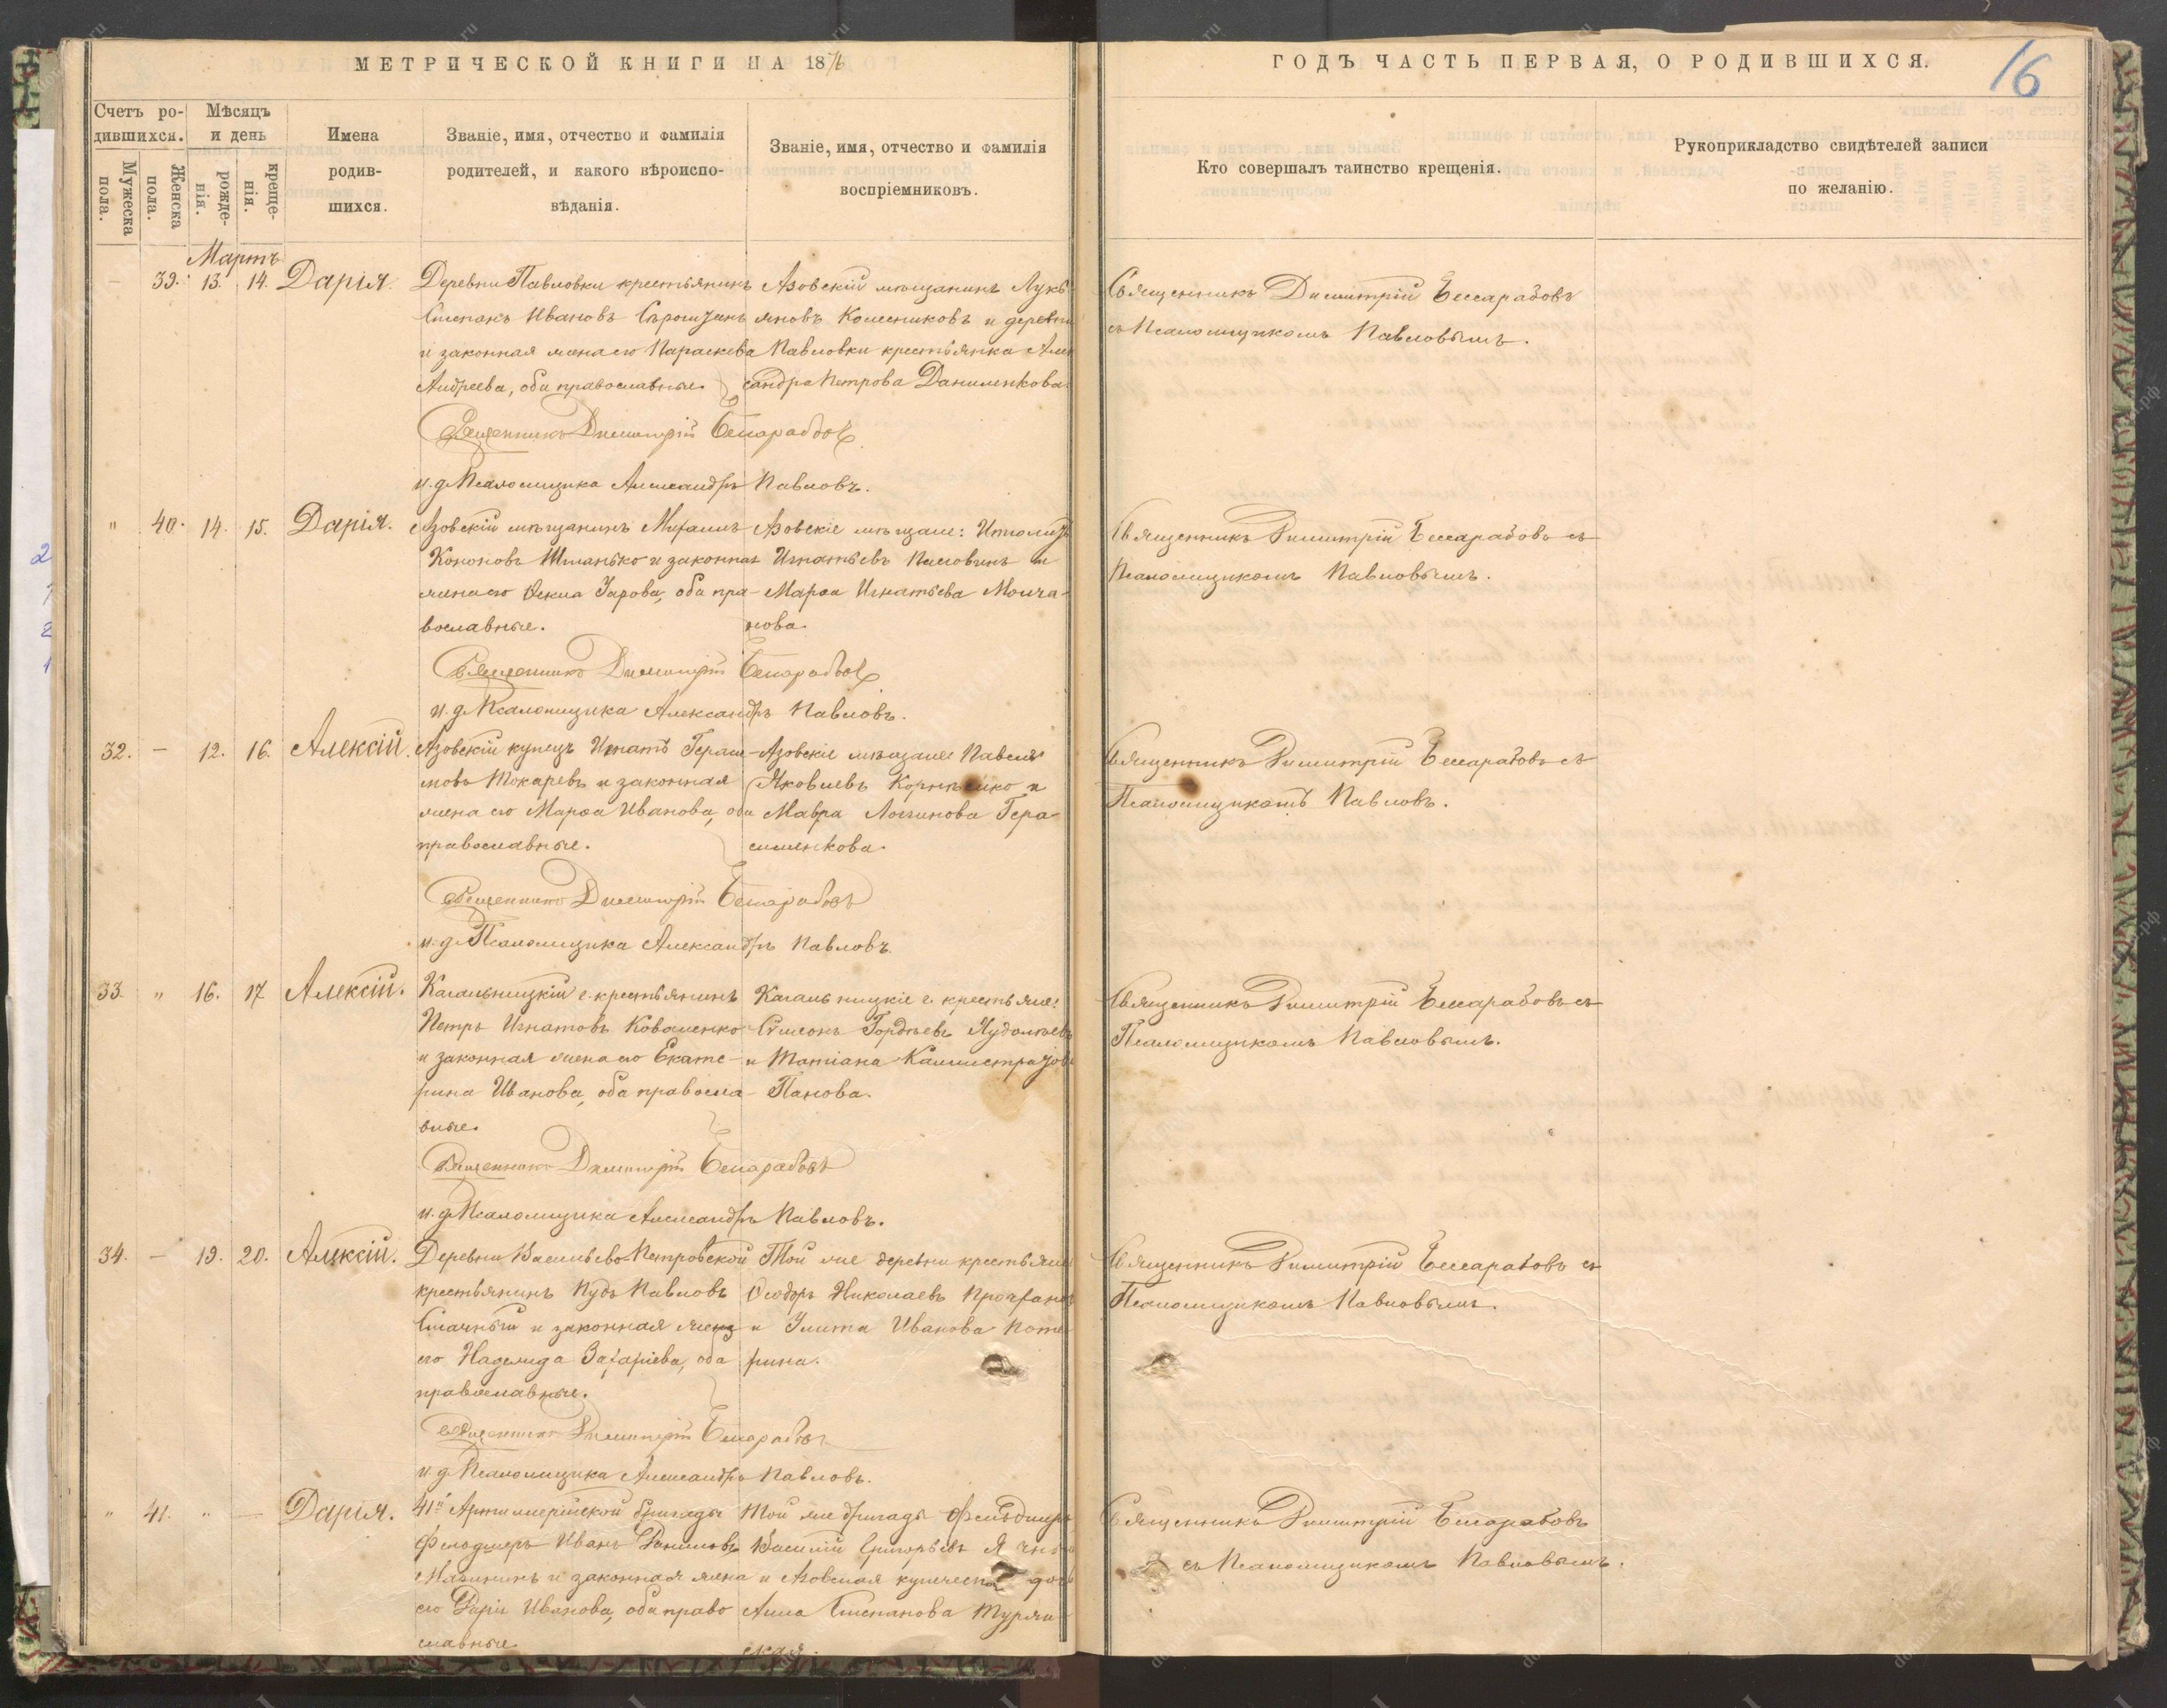 МЕТРИЧЕСКОЙ КНИГИ НА 1876
Счетъ ро-
дившихся.
Мужеска пола.
Женска пола.
Мѣсяцъ
и день
рожде-
нія.
креще-
нія.
Имена
родив-
шихся.
Званіе, имя, отчество и фамилія
родителей, и какого вѣроиспо-
вѣданія.
Званіе, имя, отчество и фамилія
воспріемниковъ.
Мартъ
— 39. 13. 14. Дарія.
Деревни Павловки крестьянинъ
Степанъ Ивановъ
и законная жена его Параскева
Андреева, оба православные.
Азовскій мѣщанинъ Лукь
яновъ Колесниковъ и деревни
Павловки крестьянка Алек
сандра Петрова Даниленкова.
Священникъ Димитрій Бессарабовъ
и. д. Псаломщика Александръ Павловъ.
" 40. 14. 15. Дарія.
Азовскій мѣщанинъ Михаилъ
Кононовъ Шманько и законная
жена его Ѳекла Уарова, оба пра-
вославные.
Азовскіе мѣщане: Ипполитъ
Игнатьевъ и
Марѳа Игнатьева Молча-
нова.
Священникъ Димитрій Бессарабовъ
и. д. Псаломщика Александръ Павловъ.
32. — 12. 16. Алексій.
Азовскій купецъ Игнатъ Гераси-
мовъ Токаревъ и законная
жена его Марѳа Иванова, оба
православные.
Азовскіе мѣщане Павелъ
Яковлевъ Корнѣенко и
Мавра Логгинова Гера-
сименкова.
Священникъ Димитрій Бессарабовъ
и. д. Псаломщика Александръ Павловъ.
33. " 16. 17 Алексій.
Кагальницкій с. крестьянинъ
Петръ Игнатовъ Коваленко
и законная жена его Екате-
рина Иванова, оба правосла-
вные.
Кагальницкіе с. крестьяне:
Симеонъ Гордѣевъ
и Татіана Каллистратова
Панова.
Священникъ Димитрій Бессарабовъ
и. д. Псаломщика Александръ Павловъ.
34. — 19. 20. Алексій.
Деревни Васильево-Петровской
крестьянинъ Пудъ Павловъ
Смачный и законная жена
его Надежда Захаріева, оба
православные.
Той же деревни крестьяне
Ѳеодоръ Николаевъ
и Улита Иванова Поте
рина.
Священникъ Димитрій Бессарабовъ
и. д. Псаломщика Александръ Павловъ.
" 41. " — Дарія.
41й Артиллерійской бригады
Фельдшеръ Иванъ Даниловъ
и законная жена
его Дарія Иванова, оба право
славные.
Той же бригады Фельдшеръ
Василій Григорьевъ
и Азовская купеческая дочь
Анна Степанова
ская.
ГОДЪ ЧАСТЬ ПЕРВАЯ, О РОДИВШИХСЯ.
16
Кто совершалъ таинство крещенія.
Рукоприкладство свидѣтелей записи
по желанію.
Священникъ Димитрій Бессарабовъ
съ Псаломщикомъ Павловымъ.
Священникъ Димитрій Бессарабовъ съ
Псаломщикомъ Павловымъ.
Священникъ Димитрій Бессарабовъ съ
Псаломщикомъ Павловъ.
Священникъ Димитрій Бессарабовъ съ
Псаломщикомъ Павловымъ.
Священникъ Димитрій Бессарабовъ съ
Псаломщикомъ Павловымъ.
Священникъ Димитрій Бессарабовъ
съ Псаломщикомъ Павловымъ.